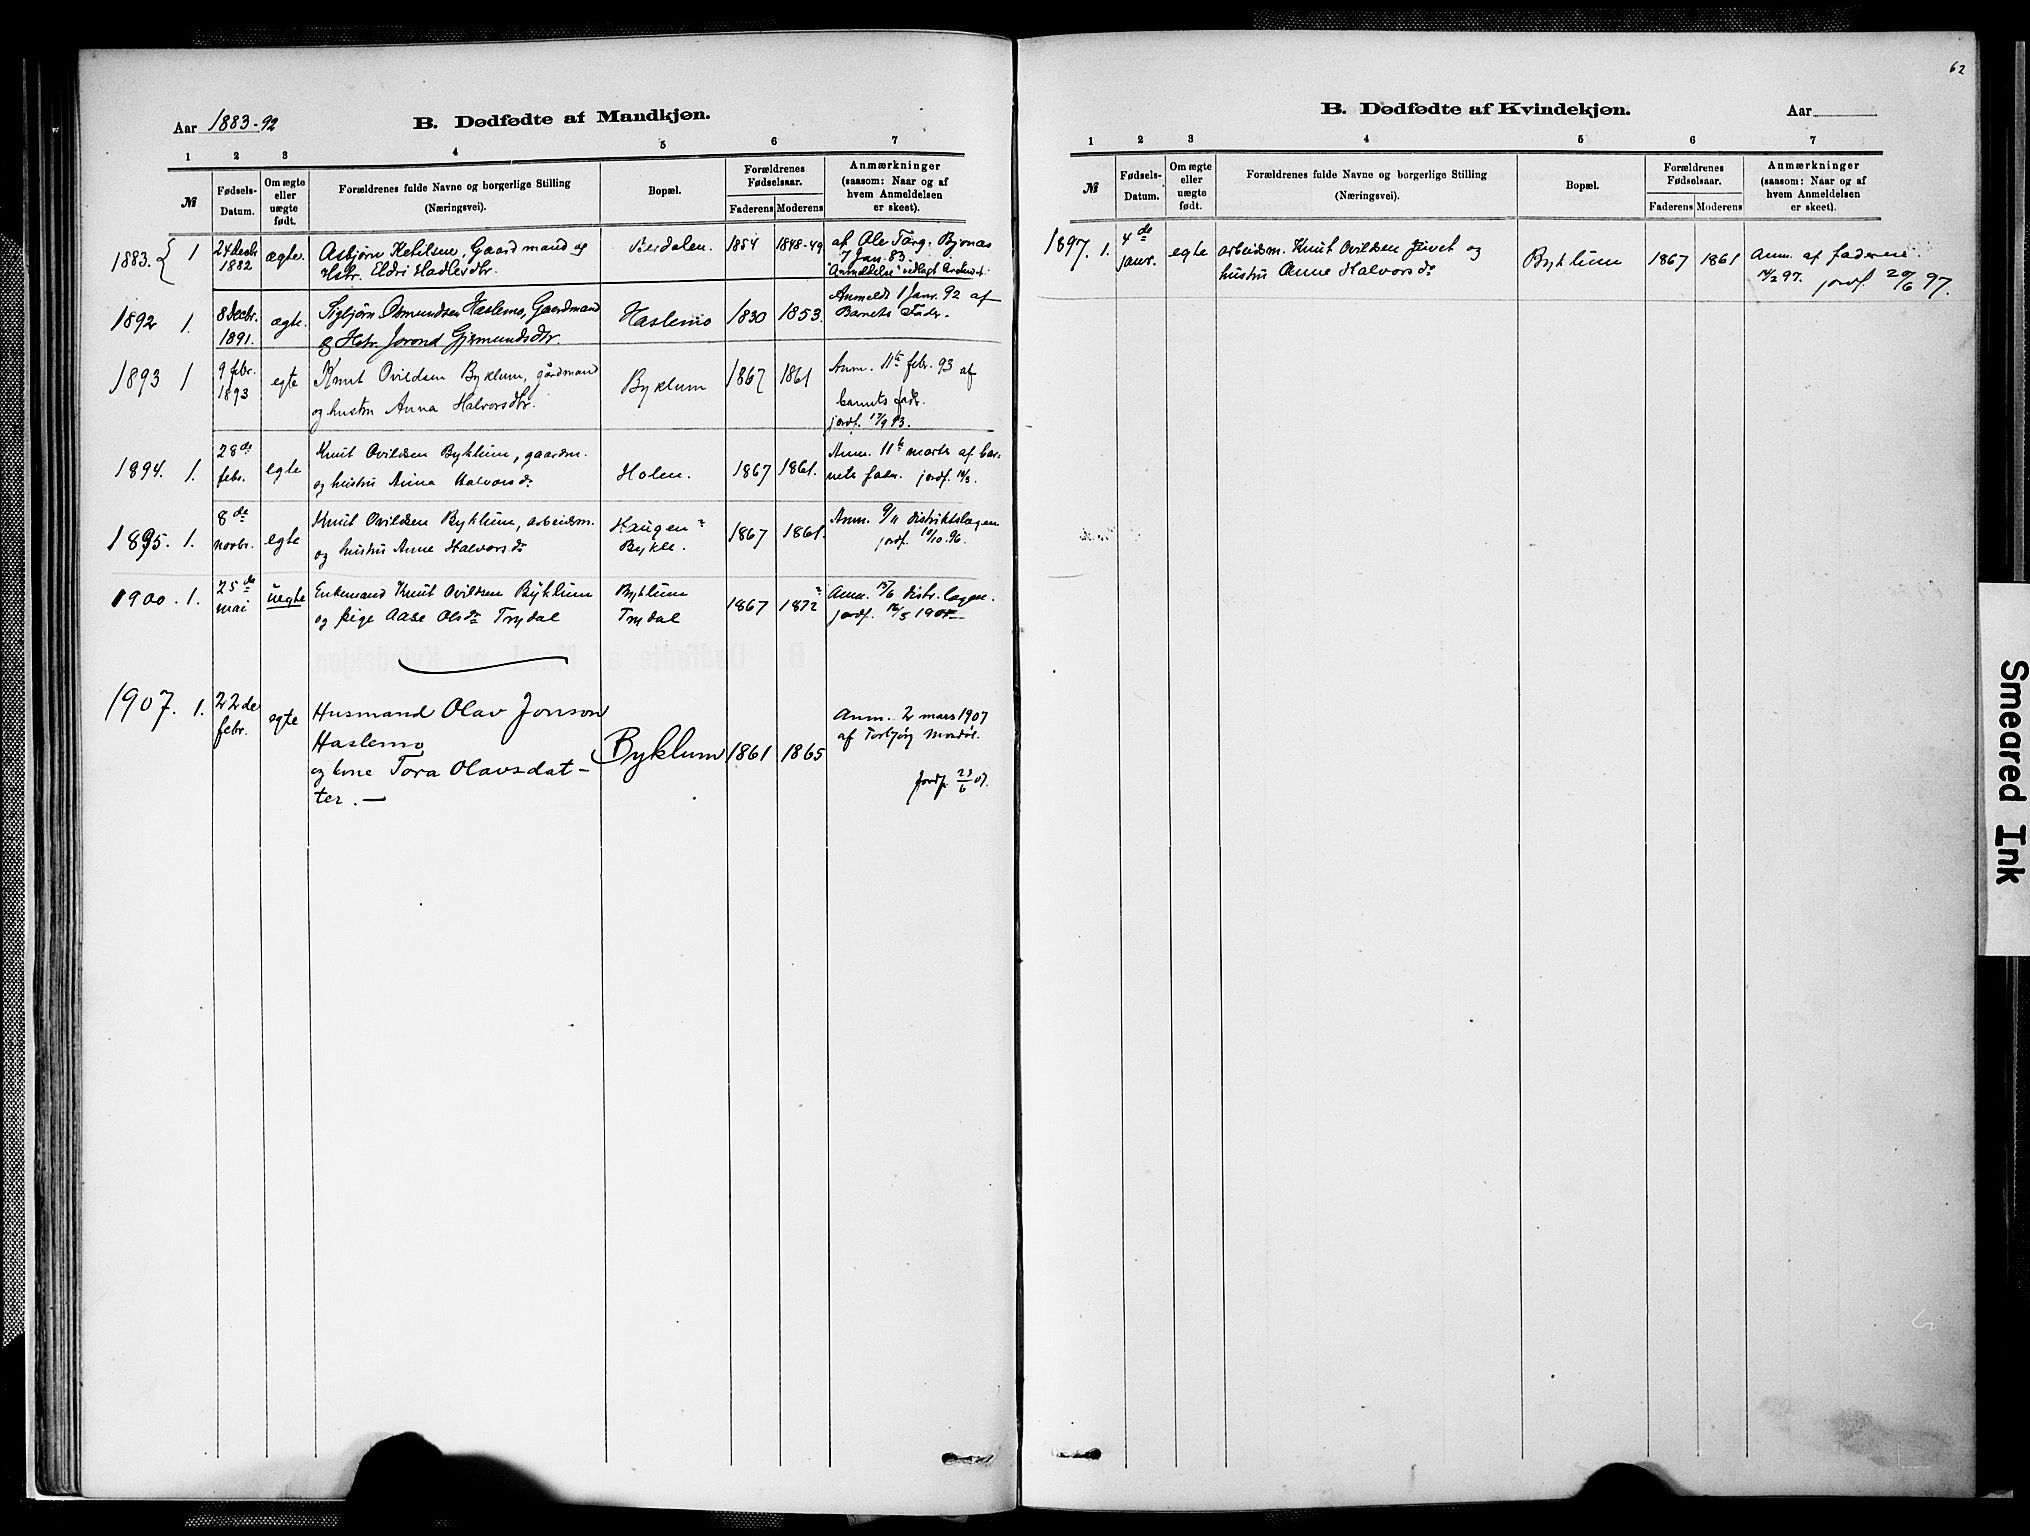 62
Aar 1883-92
B. Dødfødte af Mandkjøn.
1 2 3 4 5 6 7
№
Fødsels-
Datum.
Om ægte
eller
uægte
født.
Forældrenes fulde Navne og borgerlige Stilling
(Næringsvei).
Bopæl.
Forældrenes
Fødselsaar.
Faderens Moderens
Anmærkninger
(saasom: Naar og af
hvem Anmeldelsen
er skeet).
1883. { 1 24 Decbr 1882 ægte. Asbjørn Ketilsen, Gaardmand og
Hstr. Eldri Hadlevsdtr.
1854 1848-49
af Ole Targ. Bjonas
7 Jan. 83.
1892 1. 8 Decbr. 1891. ægte. Sigbjørn Osmundsen Haslemo, Gaardmand
& Hstr. Jorond Gjermundsdtr.
Haslemo 1830 1853.
Anmeldt 1 Janr. 92 af
Barnets Fader.
1893 1 9 febr. 1893 egte Knut Ovildsen Byklum, gårdmand
og hustru Anna Halvorsdtr.
Byklum 1867 1861
Anm. 11te febr. 93 af
barnets fader.
jordf. 17/9 93.
1894. 1. 28de febr. egte Knut Ovildsen Byklum, gaardm.
og hustru Anna Halvorsdr
Holen. 1867 1861.
Anm. 11te marts af bar-
nets fader. jordf. 14/3.
1895. 1. 8de novbr. egte Knut Ovildsen Byklum, arbeidsm.
og hustru Anne Halvorsdr
Haugen
Bykle. 1867 1861.
Anm. 9/11 Distriktslægen.
jordf. 10/10. 96.
1900. 1. 25de mai uegte Enkemand Knut Ovildsen Byklum
og pige Aase Olsdr Trydal
Byklum
Trydal 1867 1872
Anm. 15/6 distr. lægen.
jordf. 12/5 1901
1907. 1. 22de febr. egte Husmand Olav Jonson
Haslemo
og kone Tora Olavsdat-
ter. —
Byklum 1861 1865
Anm. 2 mars 1907
af Torbjørg
Jordf. 23/6 07.
B. Dødfødte af Kvindekjøn.
Aar
1 2 3 4 5 6 7
№
Fødsels-
Datum.
Om ægte
eller
uægte
født.
Forældrenes fulde Navne og borgerlige Stilling
(Næringsvei).
Bopæl.
Forældrenes
Fødselsaar.
Faderens Moderens
Anmærkninger
(saasom: Naar og af
hvem Anmeldelsen
er skeet).
1897. 1. 4de janr. egte arbeidsm. Knut Ovildsen og
hustru Anne Halvorsdr
Byklum 1867 1861
Anm. af faderen
14/2 97. jordf. 20/6 97.
Smeared Ink